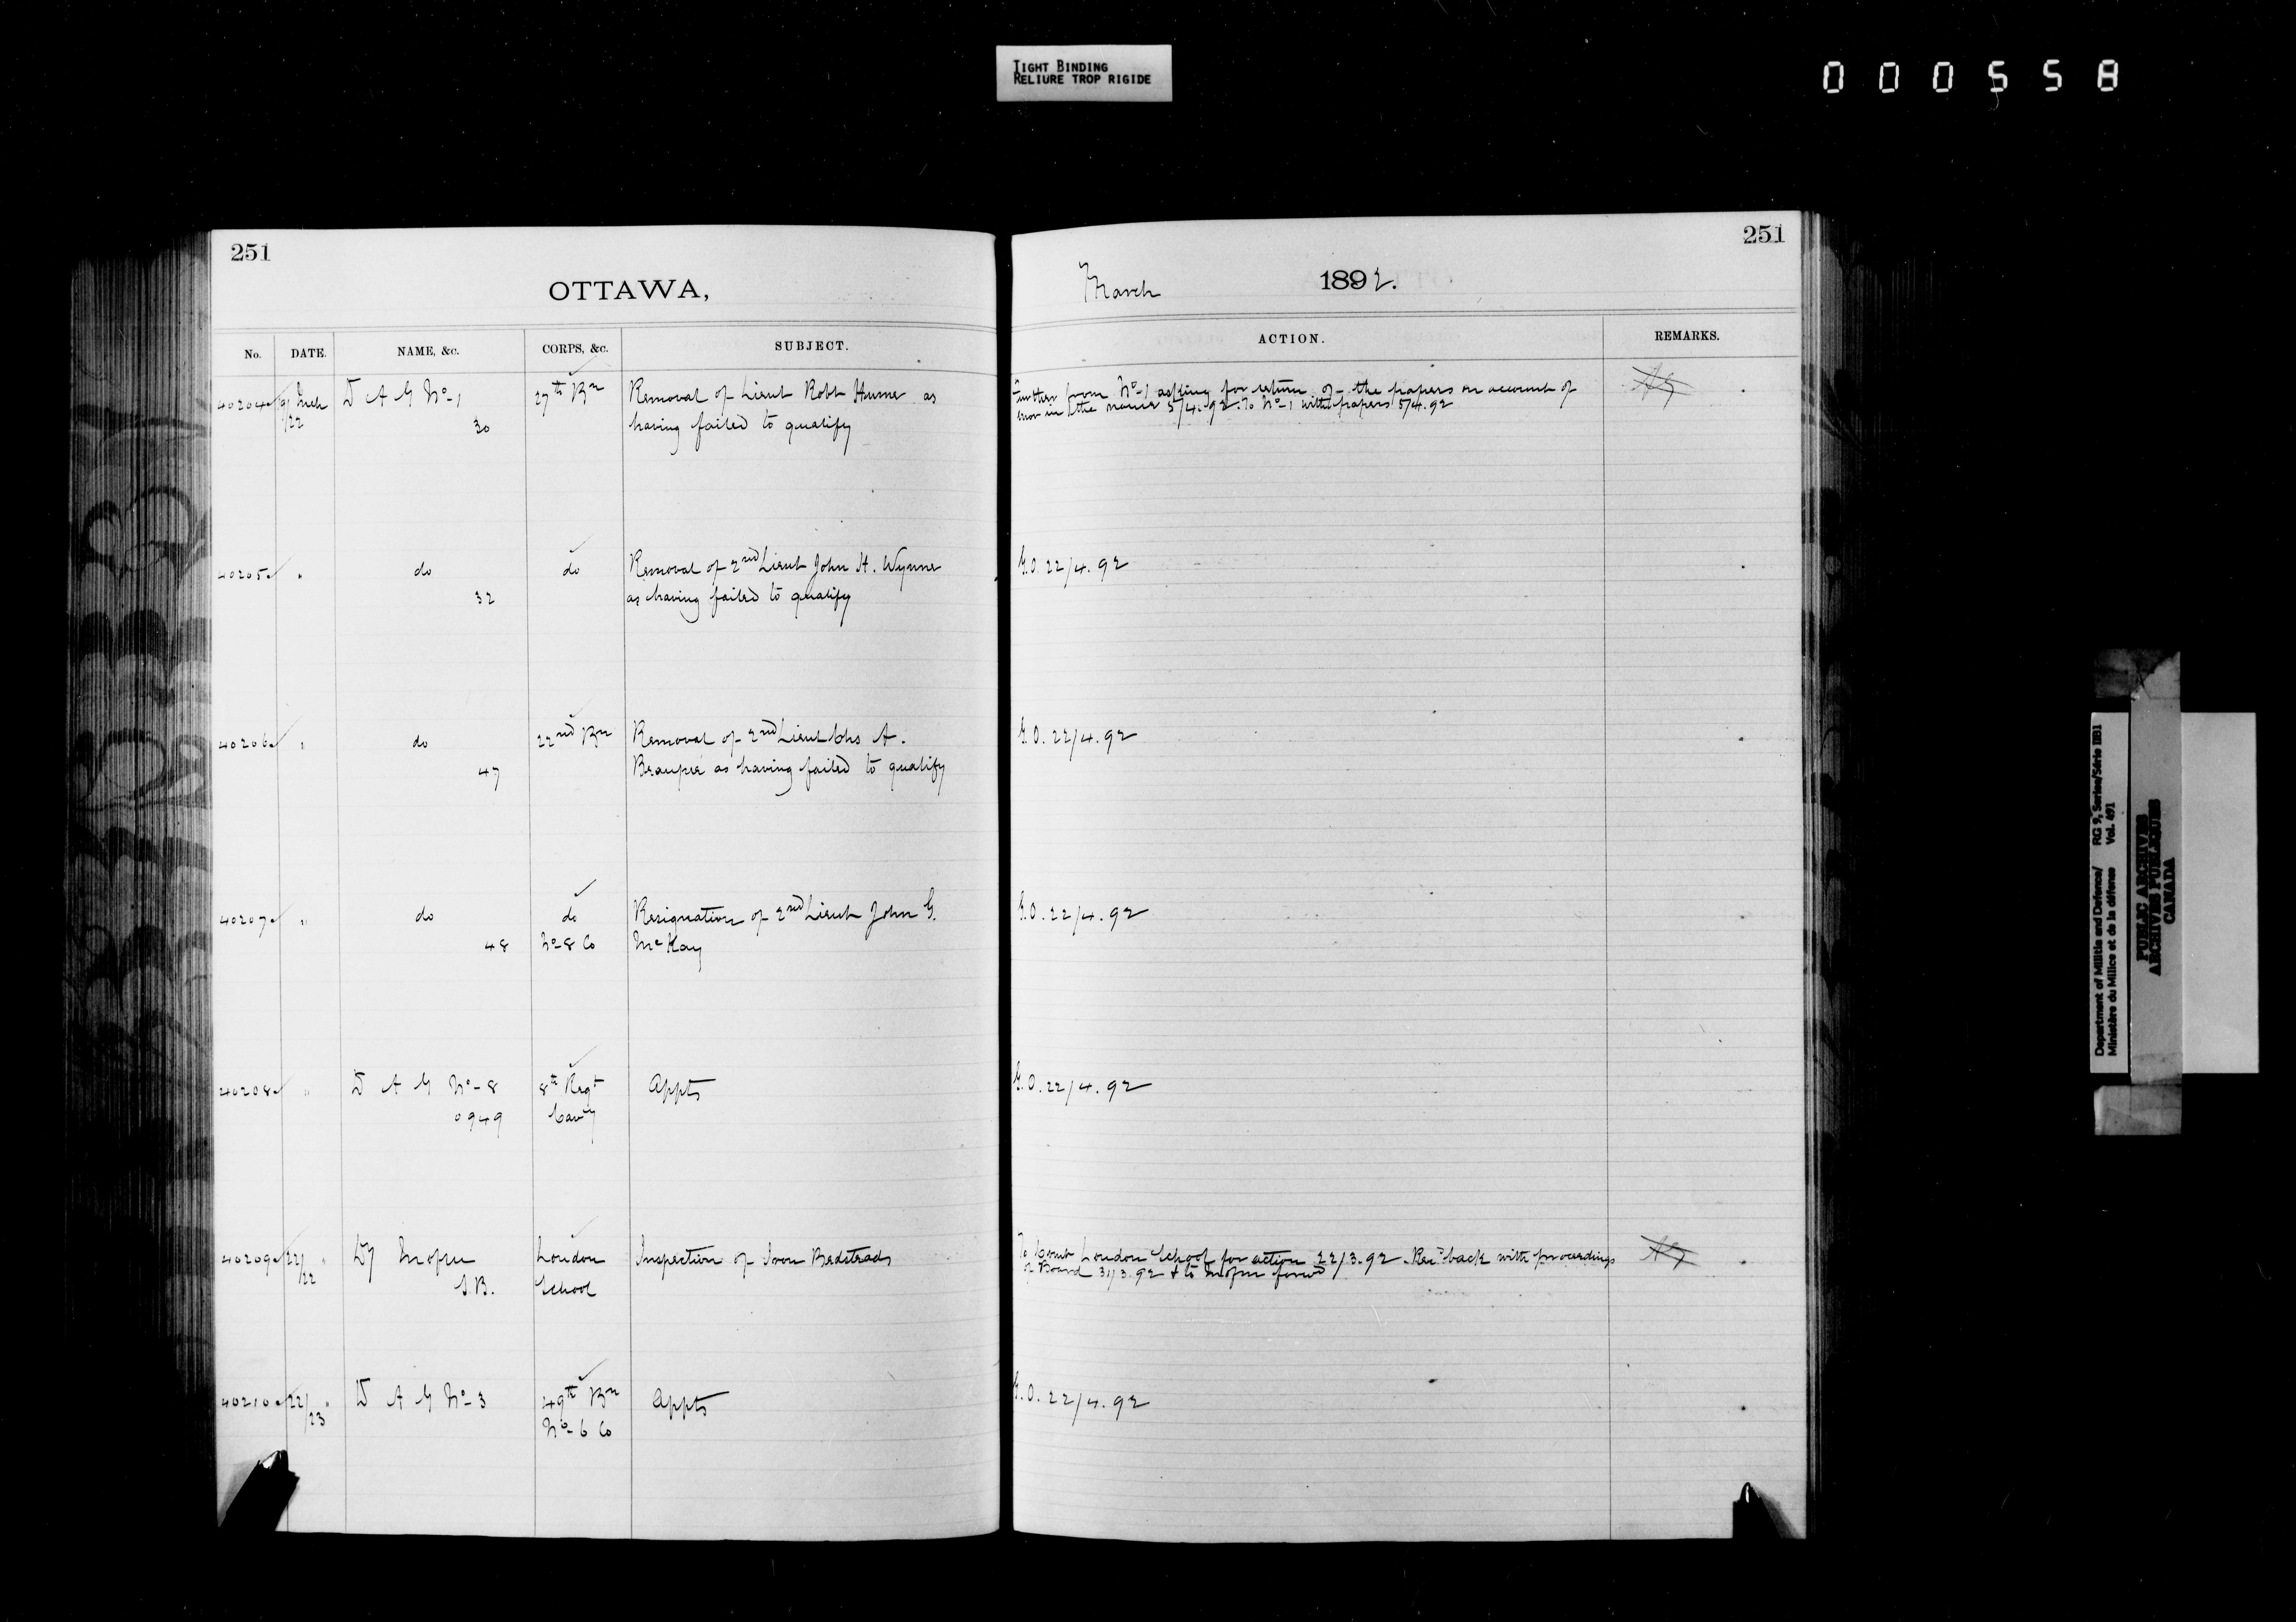 TIGHT BINDING
RELIURE TROP RIGIDE
000558
251
OTTAWA,
251
March 1892.
No. DATE. NAME, &c. CORPS, &c. SUBJECT.
ACTION. REMARKS.
40204 9/22 Mch D A G No-1 27th Bn Removal of Lieut Robt Hume as
30 having failed to qualify
Further from No-1 asking for return of the papers on account of
error in the name 5/4.92. To No-1 with papers 5/4.92
40205 " do do Removal of 2nd Lieut John H. Wynne
32 as having failed to qualify
G.O. 22/4.92
40206 " do 22nd Bn Removal of 2nd Lieut Chs A.
47 as having failed to qualify
G.O. 22/4.92
40207 " do do Resignation of 2nd Lieut John G.
48 No-8 Co McKay
G.O. 22/4.92
40208 " D A G No-8 8th Regt Appts
0949 Cavy
G.O. 22/4.92
40209 22/22 " London Inspection of Iron Bedsteads
S.B. School
To Comt London School for action 22/3.92. Recd back with proceedings
of Board 31/3.92 & to
40210 22/23 " D A G No-3 49th Bn Appts
No-6 Co
G.O. 22/4.92
Department of Militia and Defence/ RG 9, Series/Série IIB1
Ministère du Milice et de la défense Vol. 491
PUBLIC ARCHIVES
ARCHIVES PUBLIQUES
CANADA